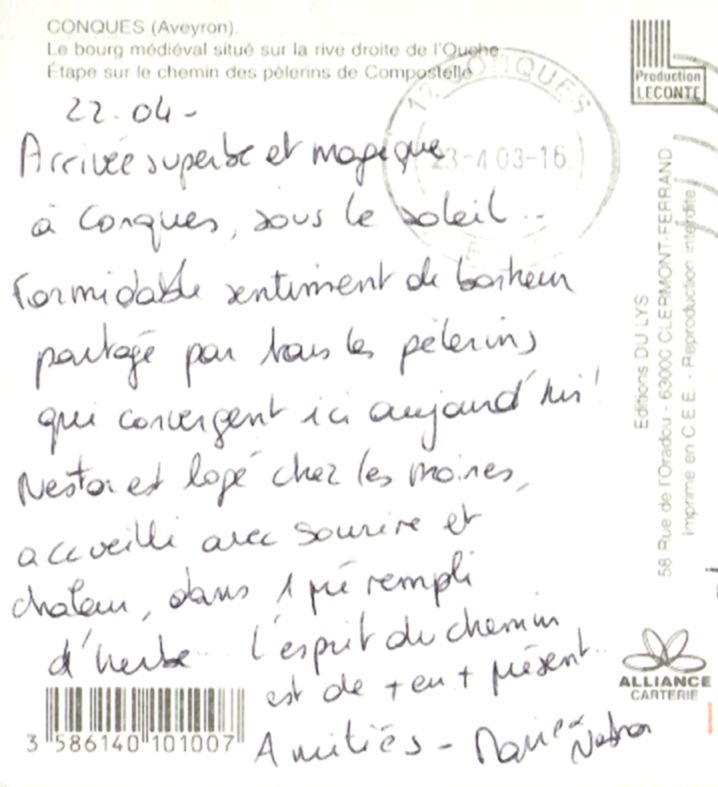 CONQUES (Aveyron).
Le bourg médiéval situé sur la rive droite de l'Ouche.
Étape sur le chemin des pèlerins de Compostelle
22.04 -
Arrivée superbe et magique
à Conques, sous le soleil...
Formidable sentiment de bonheur
partagé par tous les pèlerins
qui convergent ici aujourd'hui!
Nestor est logé chez les moines,
accueilli avec sourire et
chaleur, dans 1 pré rempli
d'herbe... L'esprit du chemin
est de + en + présent...
Amitiés - Marie - Nestor
CONQUES
23-4 03-16
Production
LECONTE
Editions DU LYS
58 Rue de l'Oradou - 63000 CLERMONT-FERRAND
Imprimé en C.E.E. - Reproduction interdite
ALLIANCE
CARTERIE
3 586140 101007